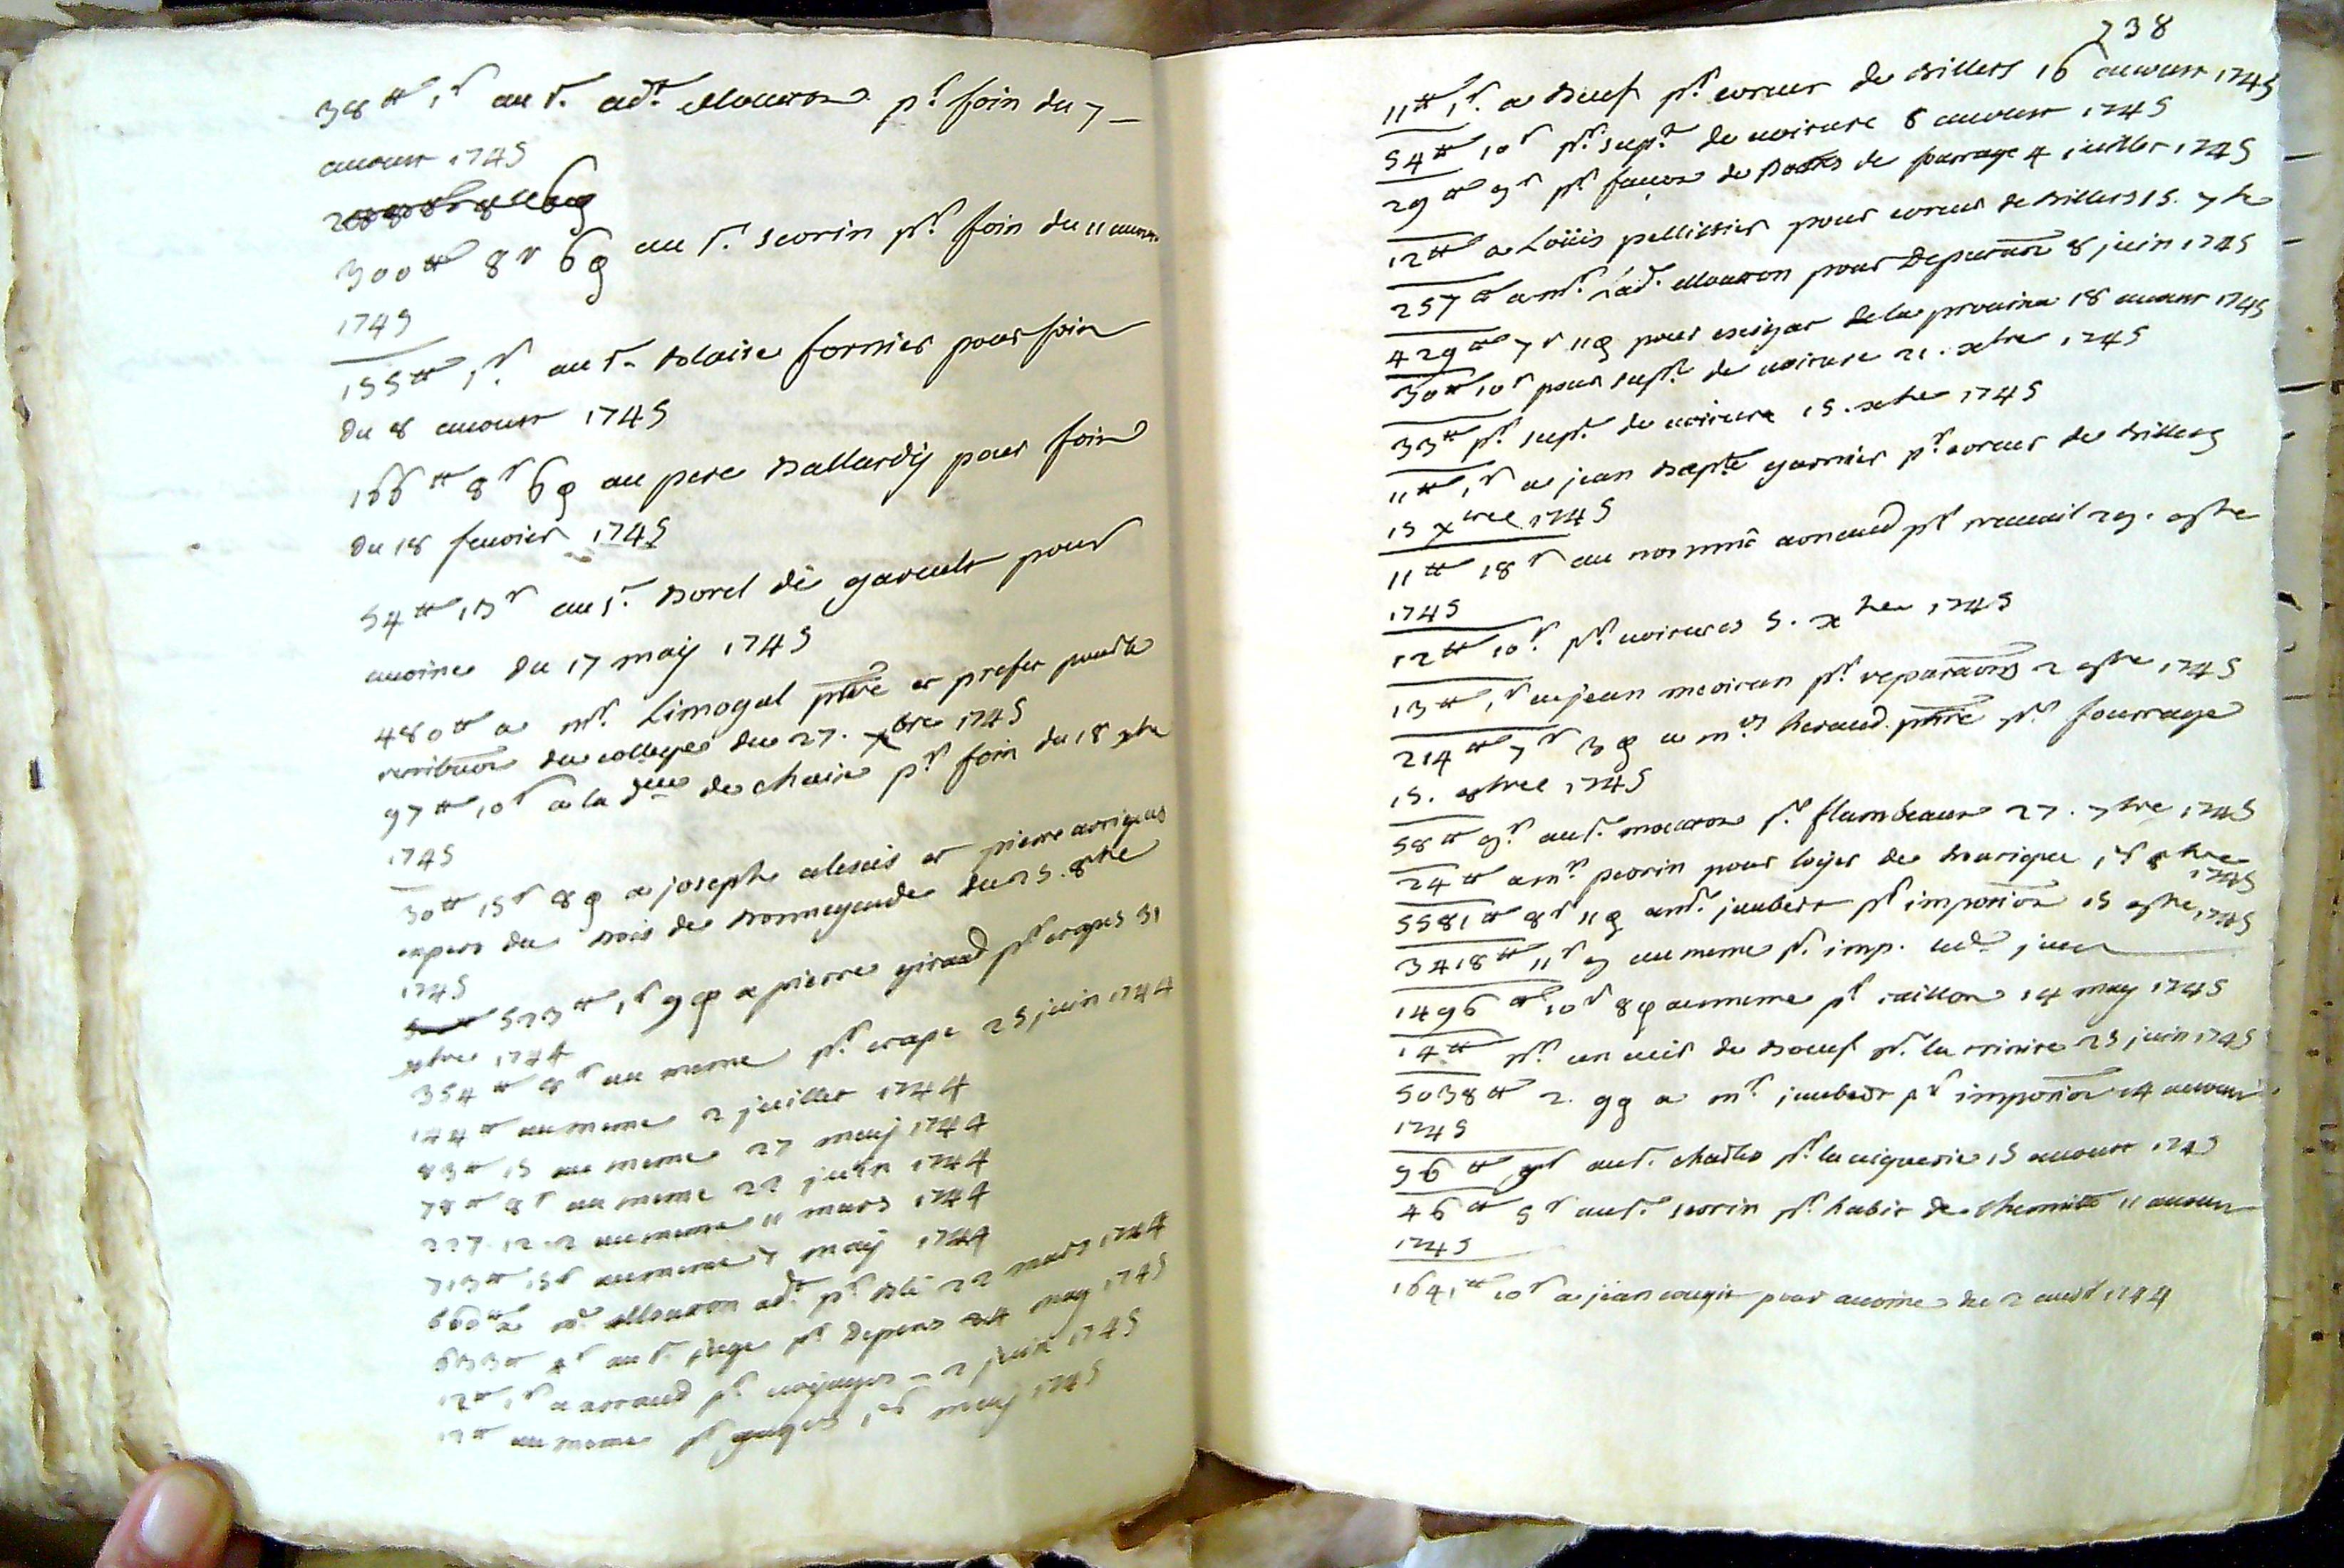 38 ₶ 1 s au sr. adt. Mouton pr. foin du 7 _
auoust 1745
300 ₶ 8 s 6 d au sr. scorin pr. foin du 11 auoust
1745
155 ₶ 1 s. au sr. Blaise fornier pour foin
du 8 auoust 1745
166 ₶ 8 s 6 d au pere Ballardy pour foin
du 18 feurier 1745
54 ₶ 13 s au sr. Borel de garcult pour
auoine du 17 may 1745
480 ₶ a mr. Limogal ptre et prefet pour la
retribution du college du 27. xbre 1745
97 ₶ 10 s a la dlle de chaix pr. foin du 18 xbre
1745
30 ₶ 15 s 8 d a joseph alexis et pierre arrigens
expers du bois de du 25. 8bre
1745
523 ₶ 1 s 9 d a pierre giraud pr. etapes 31
xbre 1744
354 ₶ 8 s au meme pr. etape 25 juin 1744
144 ₶ au meme 2 juillet 1744
83 ₶ 15 au meme 27 may 1744
78 ₶ 8 s au meme 22 juin 1744
227. 12. 2 au meme 11 mars 1744
713 ₶ 15 s au meme 7 may 1744
660 ₶ a mr Mouton adt. pr. blé 22 mars 1744
633 ₶ 4 s au sr. juge pr. depens 24 may 1745
12 ₶ 1 s a arnaud pr. uoyages _ 2 juin 1745
12 ₶ au meme pr. gages 16 may 1745
738
11 ₶ 1 s. a Beuf pr. coreur de billets 16 auoust 1745
54 ₶ 10 s pr. supt. de uoiture 8 auoust 1745
29 ₶ 9 s pr. facon de Bottes de fourrage 4 juillet 1745
12 ₶ a Loüis pellissier pour coreur de billets 15. 7bre
257 ₶ a mr. L'adt. Mouton pour Deputation 8 juin 1745
429 ₶ 7 s 11 d pour exigar de la prouince 18 auoust 1745
30 ₶ 10 s pour supt. de uoiture 21. xbre 1745
33 ₶ pr. supt. de uoiture 15. xbre 1745
11 ₶ 1 s a jean Baptte garnier pr. coreur de billets
15 xbre 1745
11 ₶ 18 s au nommé arnaud pr. trauail 29. 9bre
1745
12 ₶ 10 s. pr. uoitures 5. xbre 1745
13 ₶ 1 s a jean meiran pr. reparations 2 9bre 1745
214 ₶ 7 s 3 d a mre heraud. ptre pr. fourrage
15. 8bre 1745
58 ₶ 9 s. au sr. mouton pr. flambeaux 27. 7bre 1745
24 ₶ a mr. peorin pour loyer de bourique 1r 8bre
1745
5581 ₶ 8 s 11 d a mr. jaubert pr. imposition 15 9bre 1745
3418 ₶ 11 s 9 au meme pr. imp. ud. jour
1496 ₶ 10 s 8 d au meme pr. taillon 14 may 1745
14 ₶ pr. un cuir de Boeuf pr. la 25 juin 1745
5038 ₶ 2. 9 d a mr. jaubert pr. imposition 14 auoust
1745
36 ₶ 9 s au sr. charles pr. la uiguerie 15 auoust 1745
46 ₶ 5 s au sr. scorin pr. habit de 11 auoust
1745
1641 ₶ 10 s a jean cougit pour auoine du 2 aust 1744